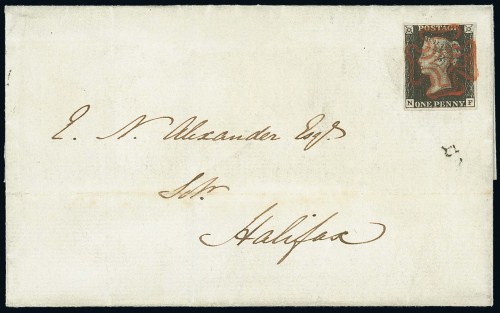 POSTAGE
N ONE PENNY F
E. N. Alexander Esqr.
Solr.
Halifax